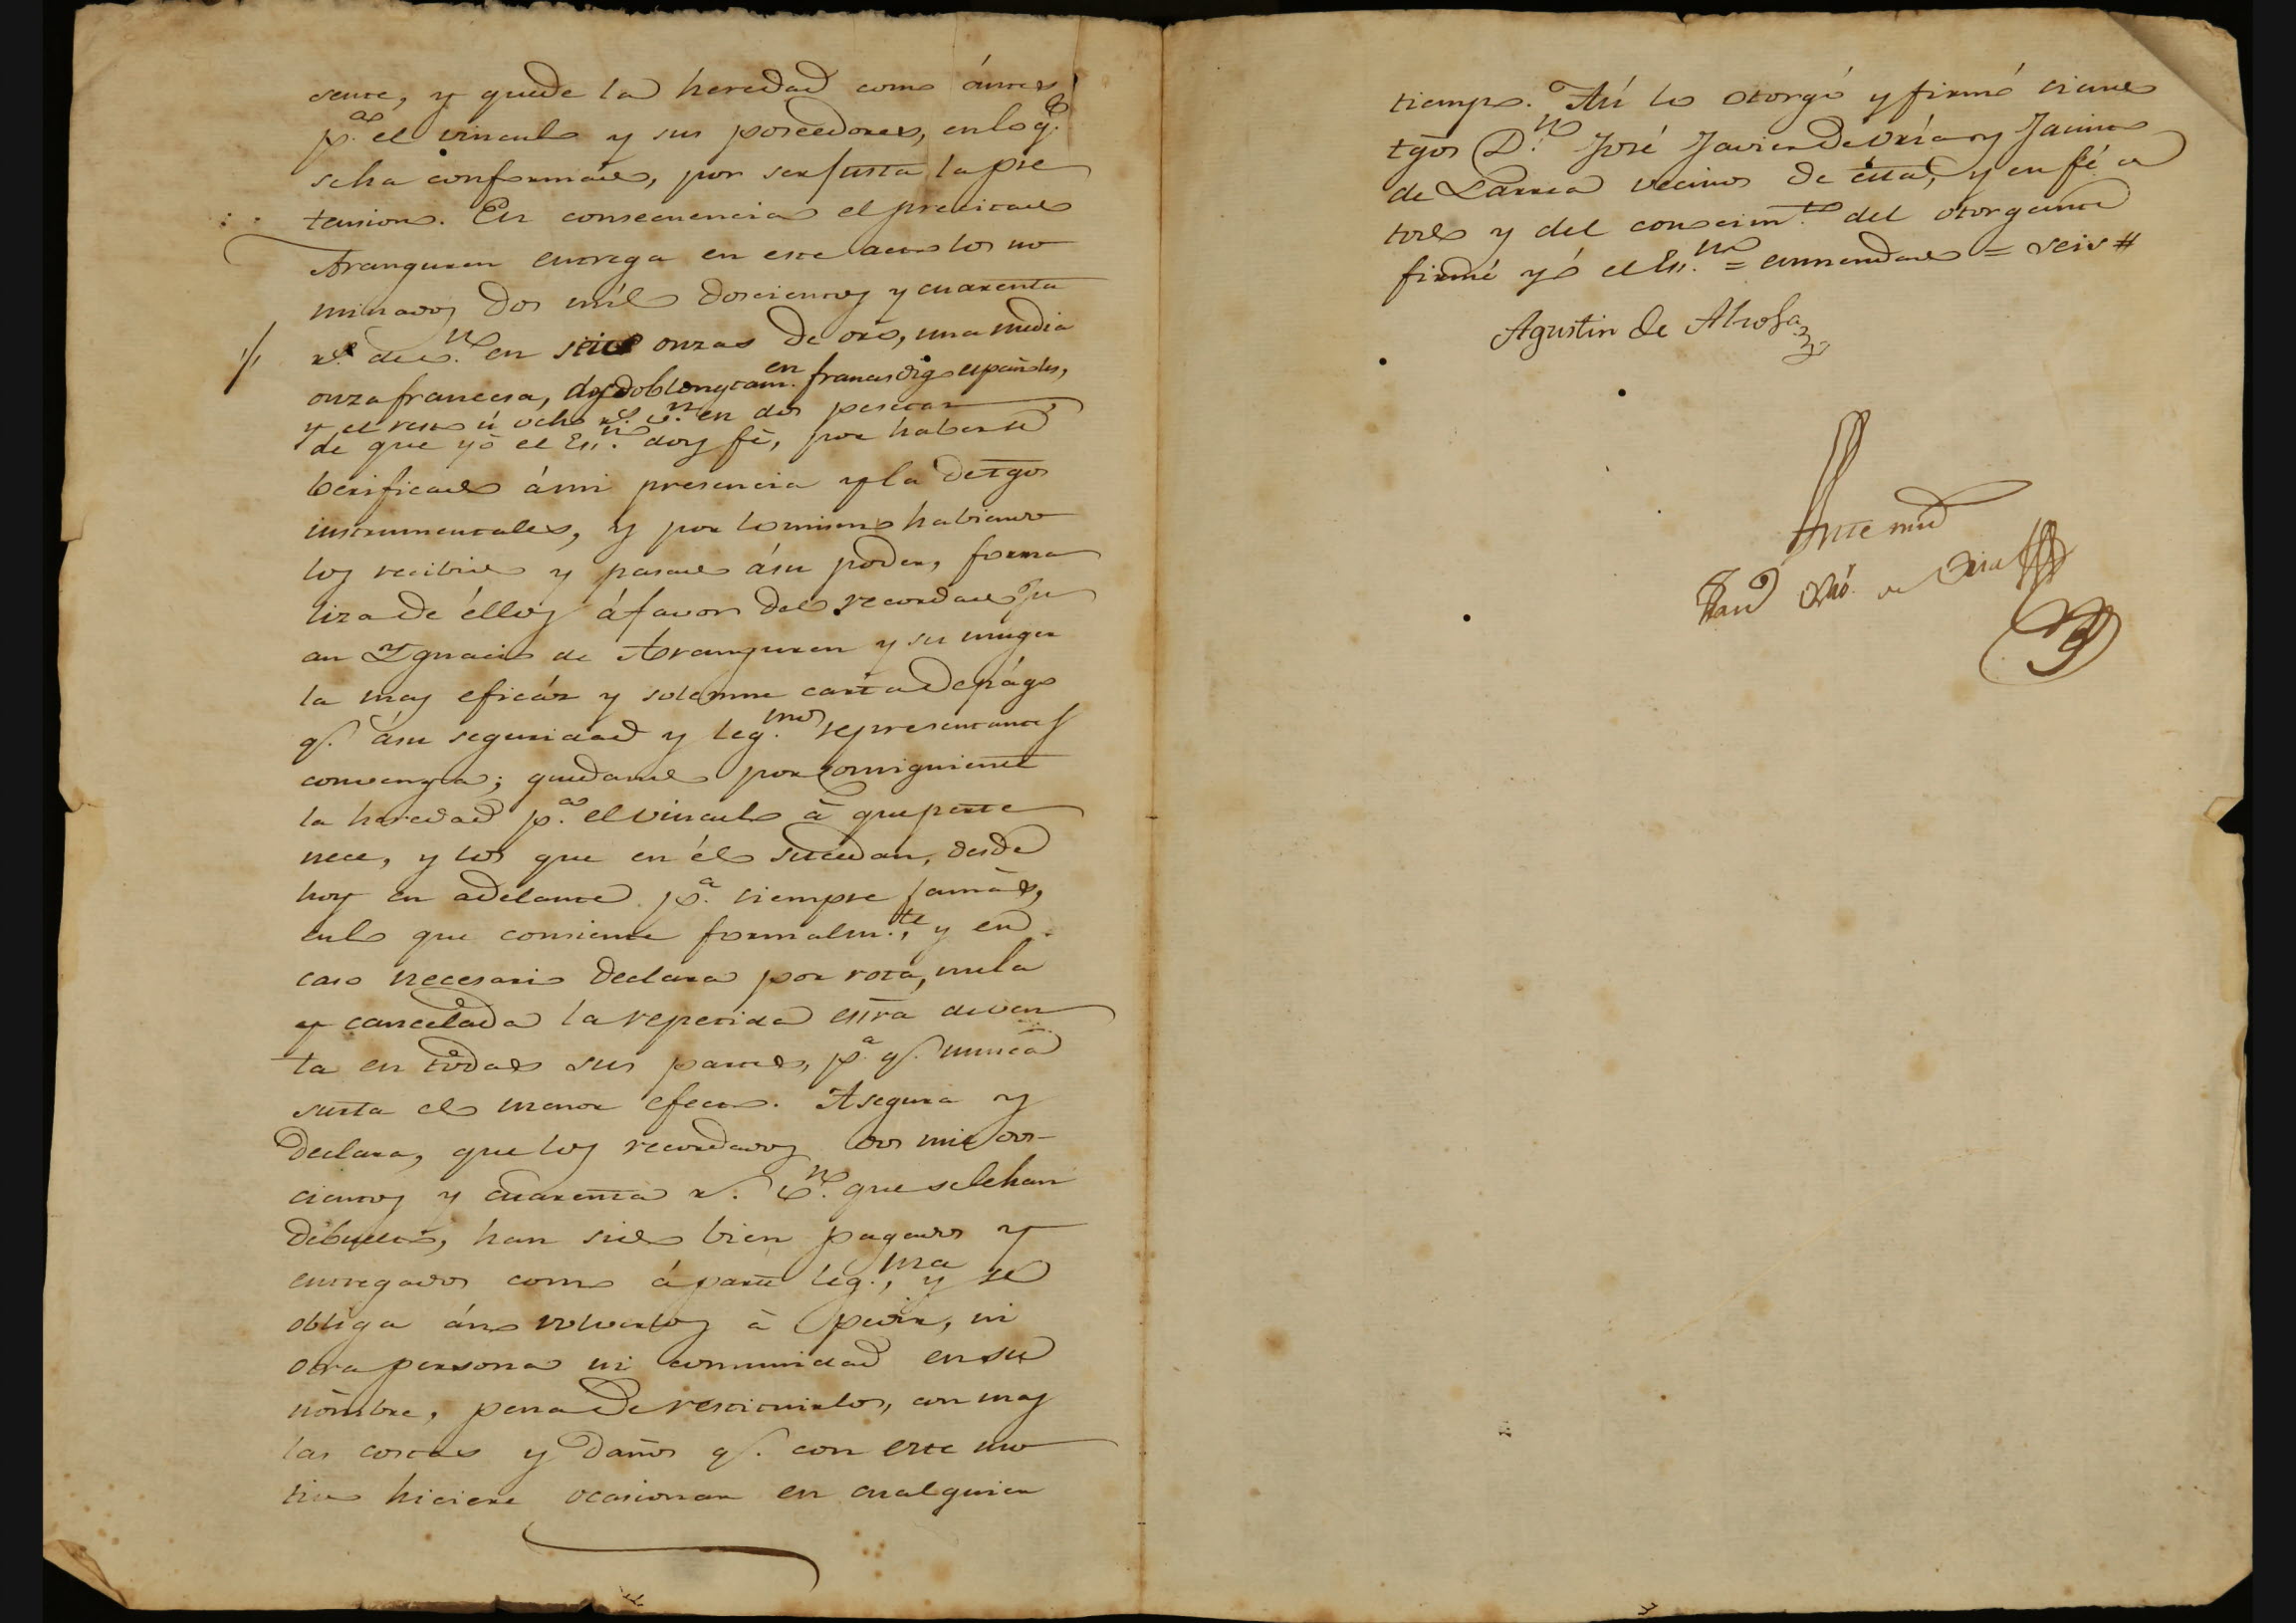 sente, y quede la heredad como ántes
p.ª el vinculo y sus poseedores, en lo q.e
se ha conformado, por ser justa la pre
tension. En consecuencia el precitado
Aranguren entrega en este acto los no
minados dos mil doscientos y cuarenta
r.s de v.n en seis onzas de oro, una media
onza francesa, doblon
y el resto ú ocho r.s v.n en dos pesetas
de que yó el Es.no doy fé, por haberse
berificado á mi presencia y la de tgos
instrumentales, y por lo mismo habiendo
los recibido y pasado á su poder, forma
liza de éllos á favor del recordado Ju
an Ygnacio de Aranguren y su muger
la mas eficáz y solemne carta de págo
q.e á su seguridad y leg.mos representantes
convenga; quedando por consiguiente
la heredad p.ª el vinculo á que perte
nece, y los que en él sucedan, desde
hoy en adelante p.ª siempre jamás,
en lo que consiente formalm.te, y en
caso necesario declara por rota, nula
y cancelada la repetida esĩra de ven
ta en todas sus partes, p.ª q.e nunca
surta el menor efecto. Asegura y
declara, que los recordados dos mil dos-
cientos y cuarenta r.s v.n que se le han
debuelto, han sido bien pagados y
entregados como á parte leg.ma, y se
obliga á no volverlos á pedir, ni
otra persona ni comunidad en su
nómbre, pena de restituirlos, con mas
las costas y daños q.e con este mo
tivo hiciere ocasionar en cualquier
tiempo. Así lo otorgó y firmó siendo
tgos D.n José Javier de Uría y Jacinto
de Larrea vecinos de ésta, y en fé de
todo y del conocim.to del otorgante
firmé yó el Es.no = enmendado = seis #
Agustin de
Ante mi